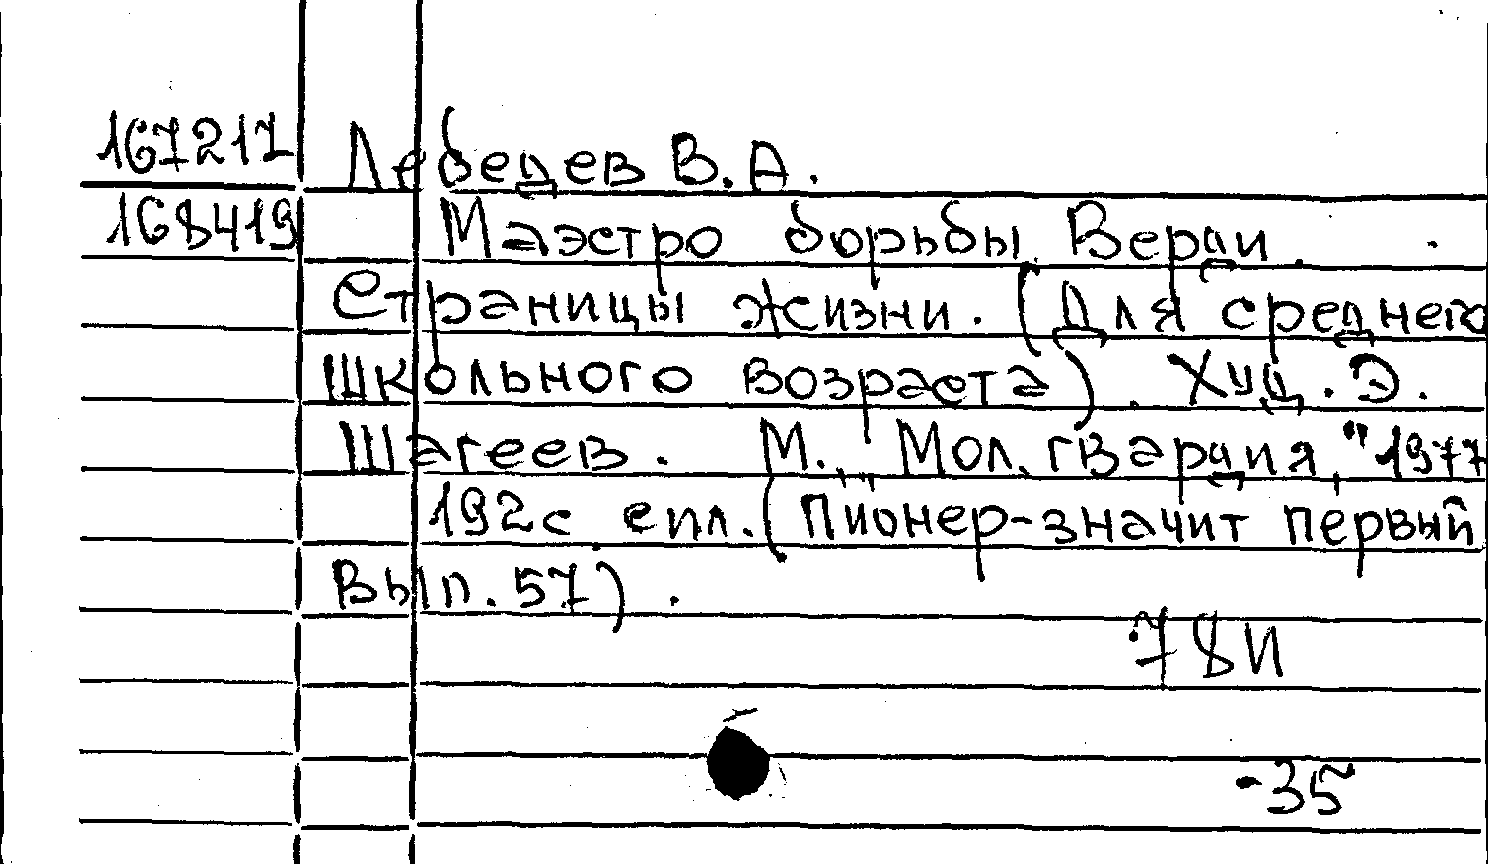 167217 Лебедев В.А.
168419 Маэстро борьбы Верди.
Страницы жизни. (Для среднего
школьного возраста). Худ. Э.
Шагеев. М., "Мол. гвардия," 1977
192с сил. (Пионер-значит первый
Вып. 57).
78И
-35